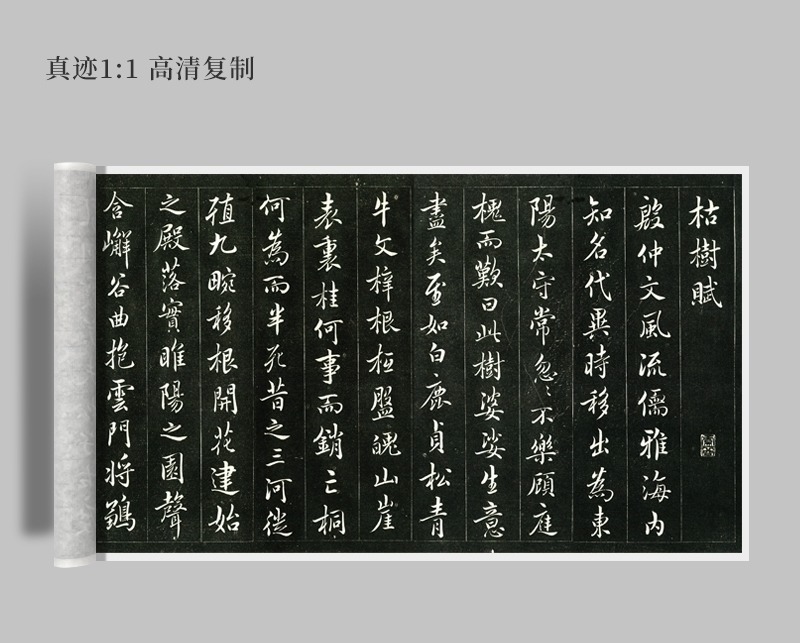 真迹1:1 高清复制
枯樹賦
殷仲文風流儒雅海内
知名代異時移出為東
陽太守常忽〻不樂顧庭
槐而歎曰此樹婆娑生意
盡矣至如白鹿貞松青
牛文梓根柢盤魄山崖
表裏桂何事而銷亡桐
何為而半死昔之三河徙
殖九畹移根開花建始
之殿落實睢陽之園聲
含嶰谷曲抱雲門将鶵